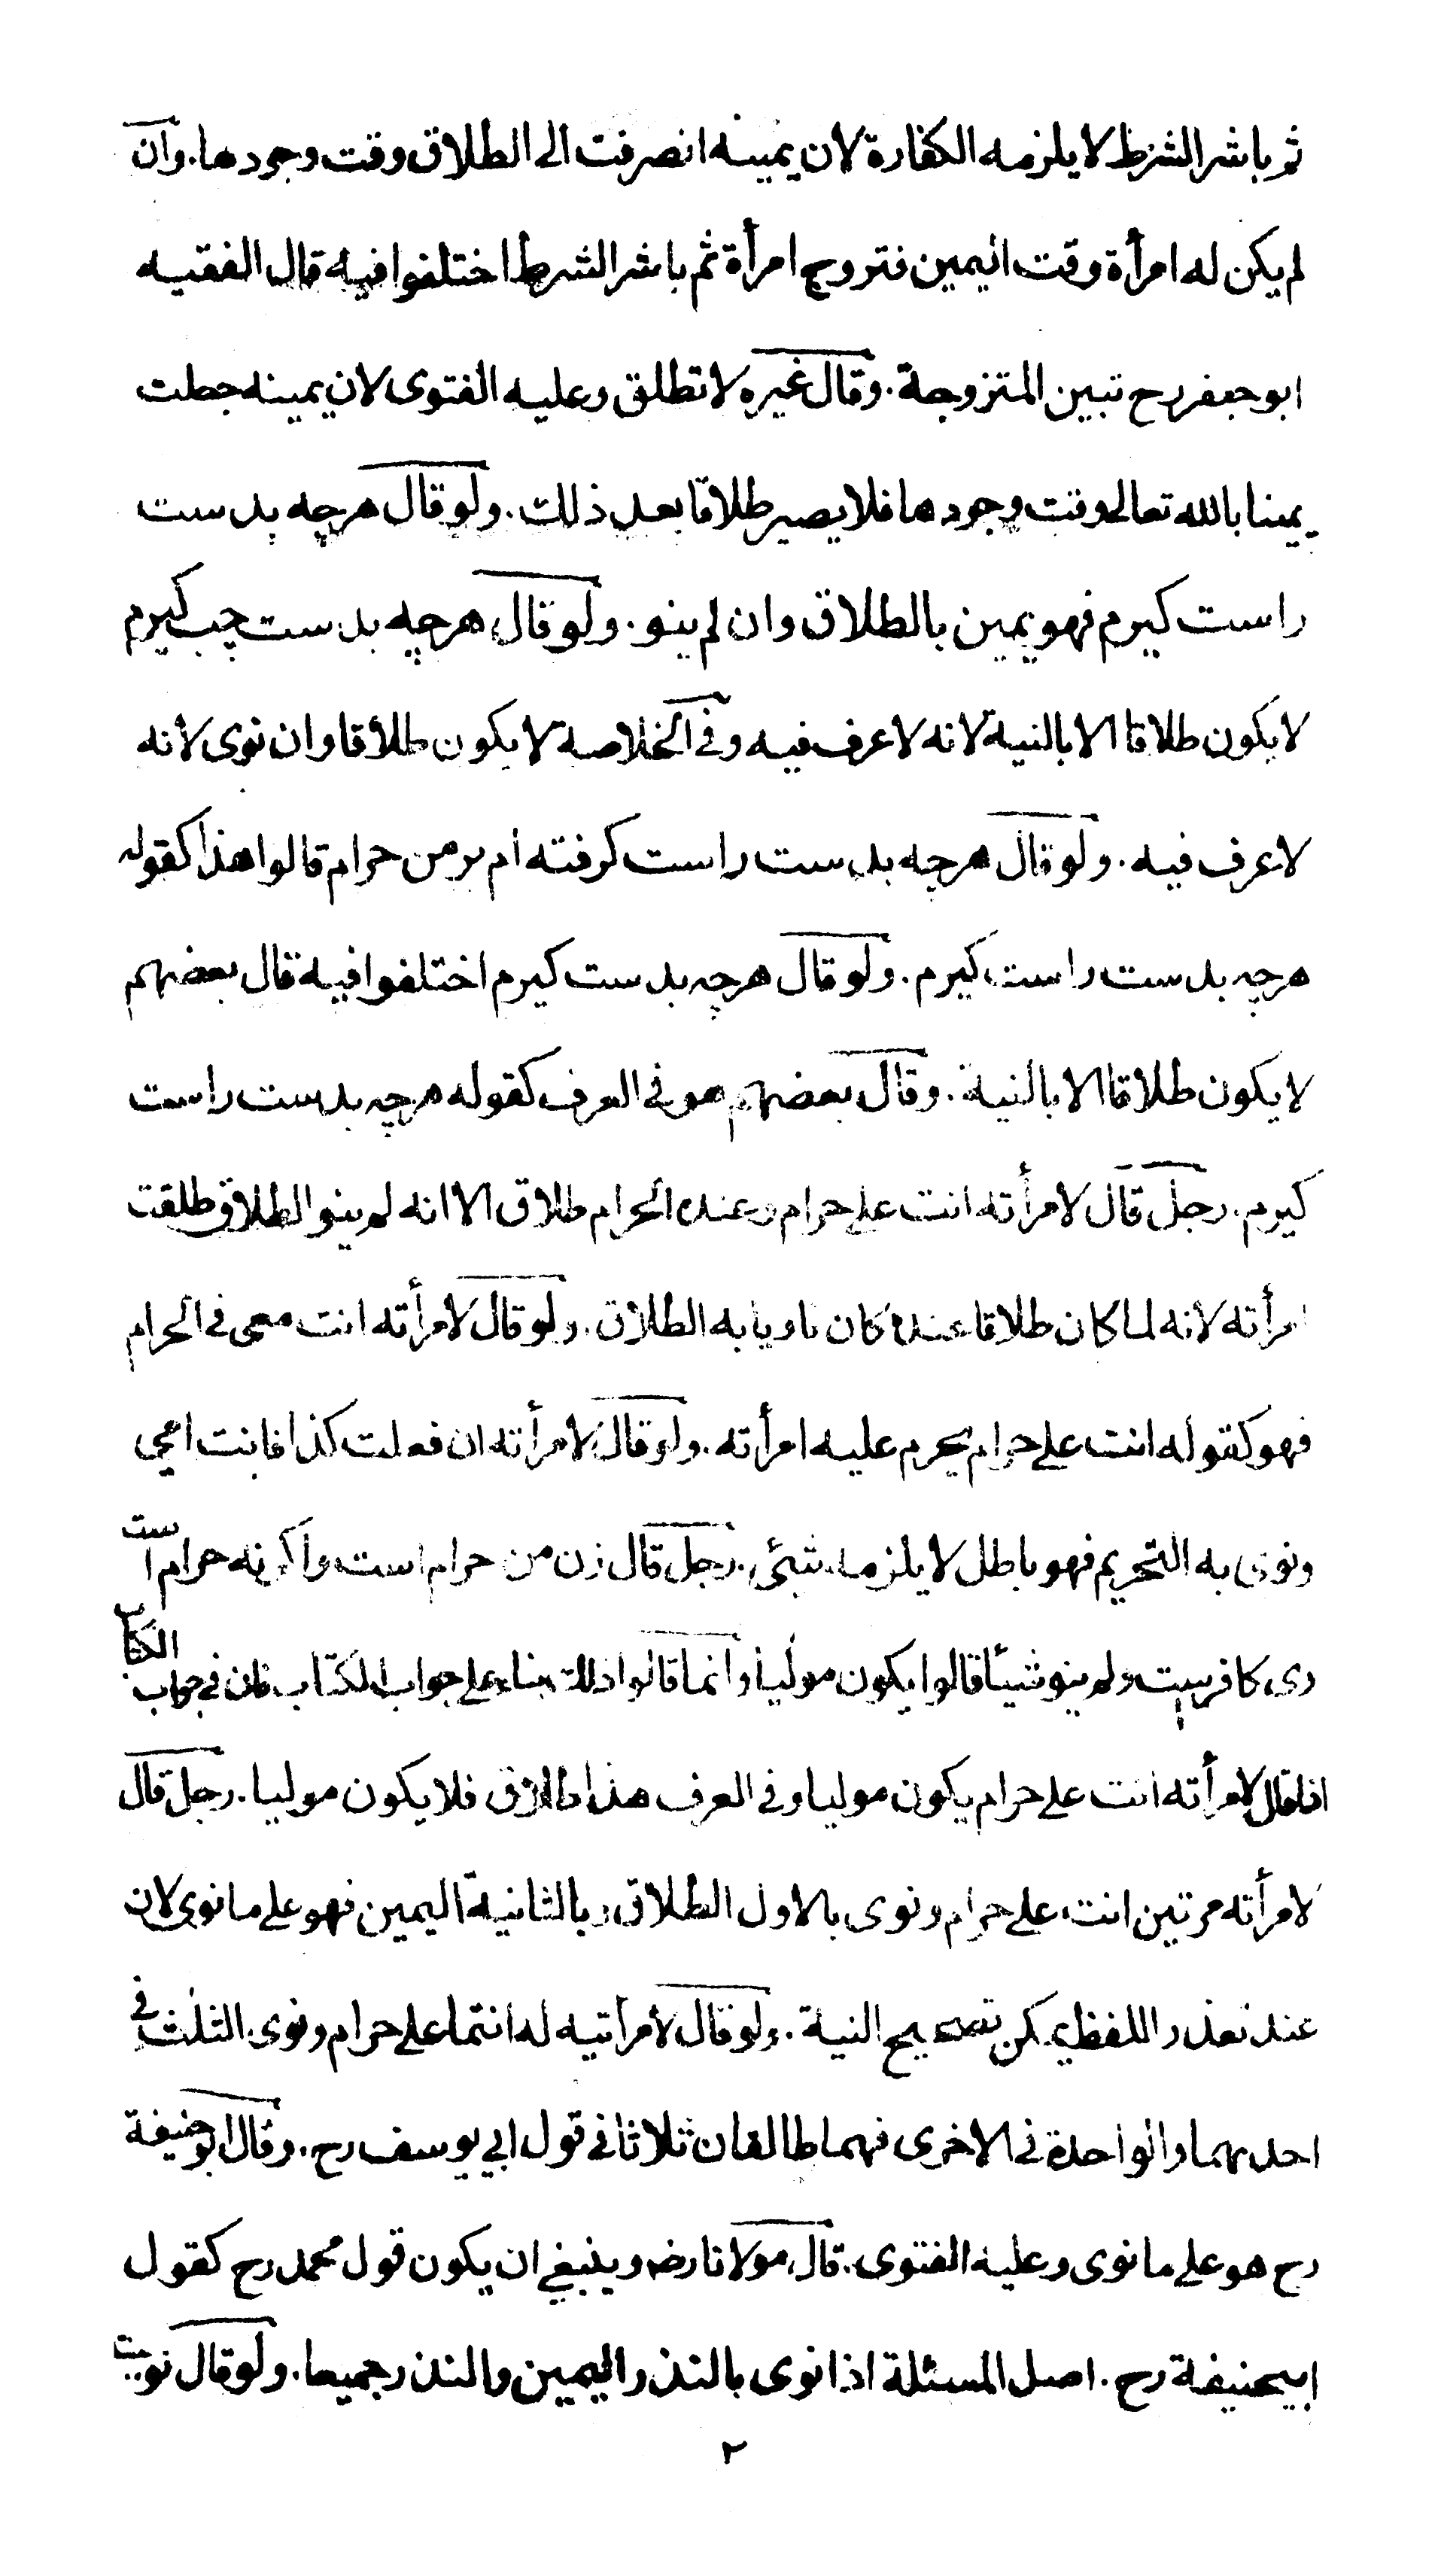 ثم باشر الشرط لا يلزمه الكفارة لان يمينه انصرفت الى الطلاق وقت وجودها. وان
لم يكن له امرأة وقت اليمين فتزوج امرأة ثم باشر الشرط اختلفوا فيه قال الفقيه
ابو جعفر رح تبين المتزوجة. وقال غيره لا تطلق وعليه الفتوى لان يمينه جعلت
يمينا بالله تعالى وقت وجودها فلا يصير طلاقا بعد ذلك. ولو قال هرچه بدست
راست كيرم فهو يمين بالطلاق وان لم ينو. ولو قال هرچه بدست چپ كيرم
لا يكون طلاقا الا بالنية لانه لا عرف فيه وفي الخلاصة لا يكون طلاقا وان نوى لانه
لا عرف فيه. ولو قال هرچه بدست راست كرفته ام بر من حرام قالوا هذا كقوله
هرچه بدست راست كيرم. ولو قال هرچه بدست كيرم اختلفوا فيه قال بعضهم
لا يكون طلاقا الا بالنية. وقال بعضهم هو في العرف كقوله هرچه بدست راست
كيرم. رجل قال لامرأته انت علي حرام وعنده الحرام طلاق الا انه لم ينو الطلاق طلقت
امرأته لانه لما كان طلاقا عنده كان ناويا به الطلاق. ولو قال لامرأته انت معي في الحرام
فهو كقوله انت علي حرام يحرم عليه امرأته. ولو قال لامرأته ان فعلت كذا فانت امي
ونوى به التحريم فهو باطل لا يلزمه شيئ. رجل قال زن من حرام است واكر نه حرام است
وى كافريست ولم ينو شيئا قالوا يكون موليا وانما قالوا ذلك بناء على جواب الكتاب فان في جواب الكتاب
اذا قال لامرأته انت علي حرام يكون موليا وفي العرف هذا طلاق فلا يكون موليا. رجل قال
لامرأته مرتين انت علي حرام ونوى بالاول الطلاق وبالثانية اليمين فهو على ما نوى لان
عند تعذر اللفظ يمكن تصحيح النية. ولو قال لامرأتيه له انتما علي حرام ونوى الثلث في
احدىهما والواحدة في الاخرى فهما طالقان ثلاثا في قول ابي يوسف رح. وقال ابو حنيفة
رح هو على ما نوى وعليه الفتوى. قال مولانا رضه وينبغي ان يكون قول محمد رح كقول
ابيحنيفة رح. اصل المسئلة اذا نوى بالنذر اليمين والنذر جميعا. ولو قال نويت
٢